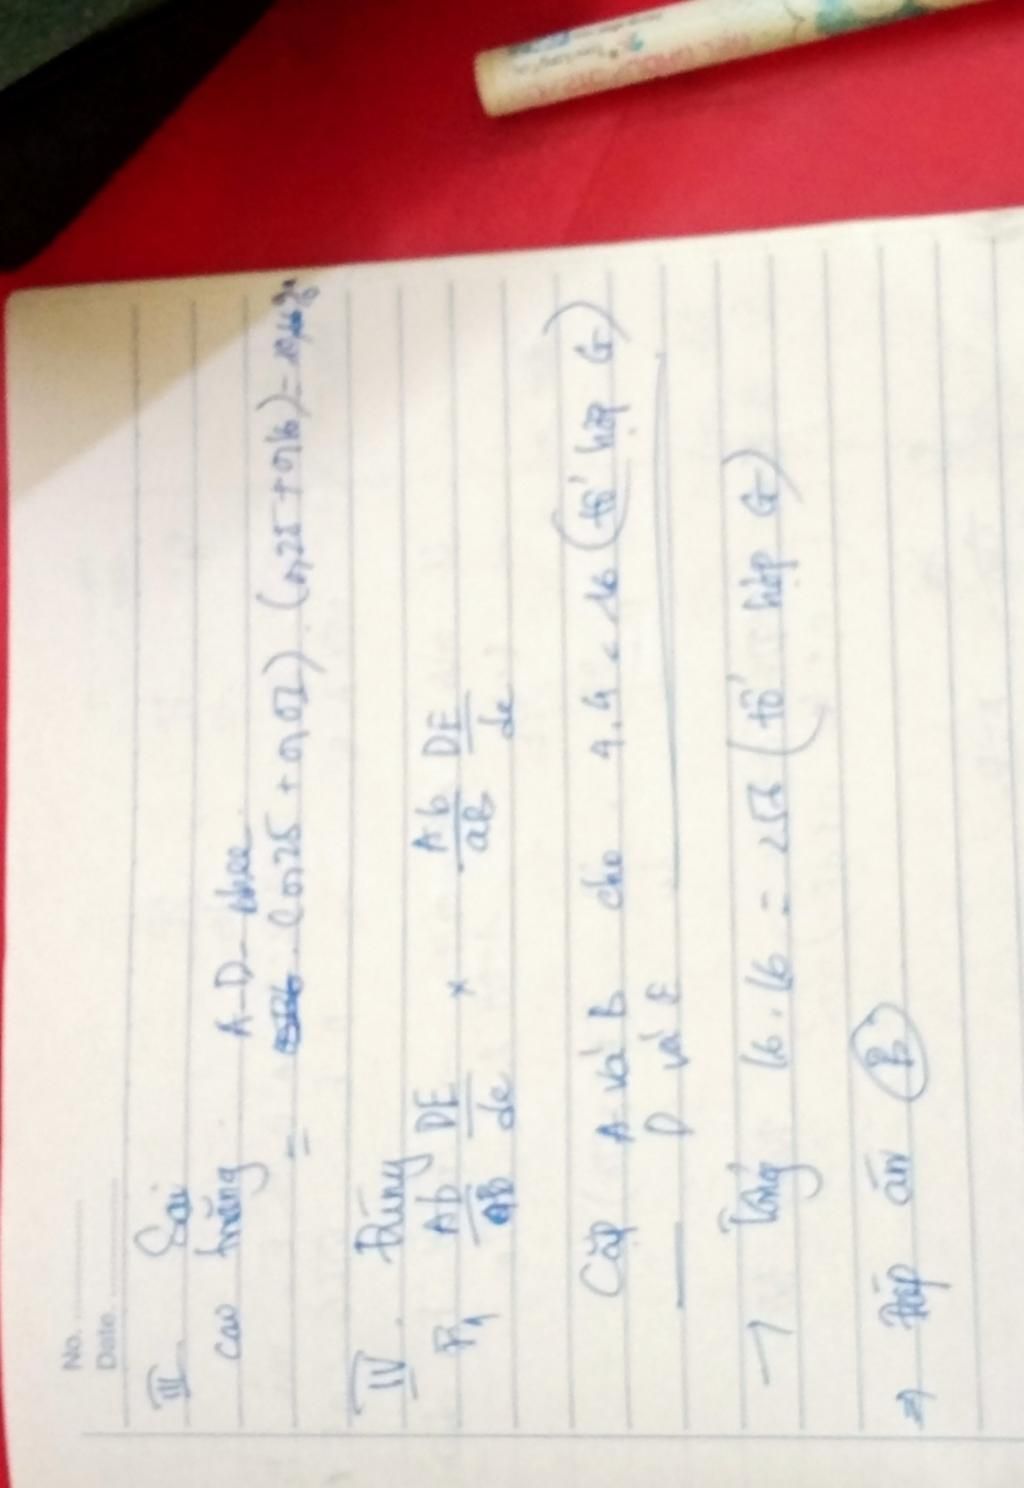 No.
Date
III. Sai
cao trắng A-D- bbee
= (0,25 + 0,01). (0,25 + 0,16) =
IV. Đúng
F1 Ab/aB DE/de × Ab/aB DE/de
Cặp A và B cho 4.4 = 16 (tổ hợp G)
D và E
→ Tổng 16.16 = 256 (tổ hợp G)
⇒ Đáp án B